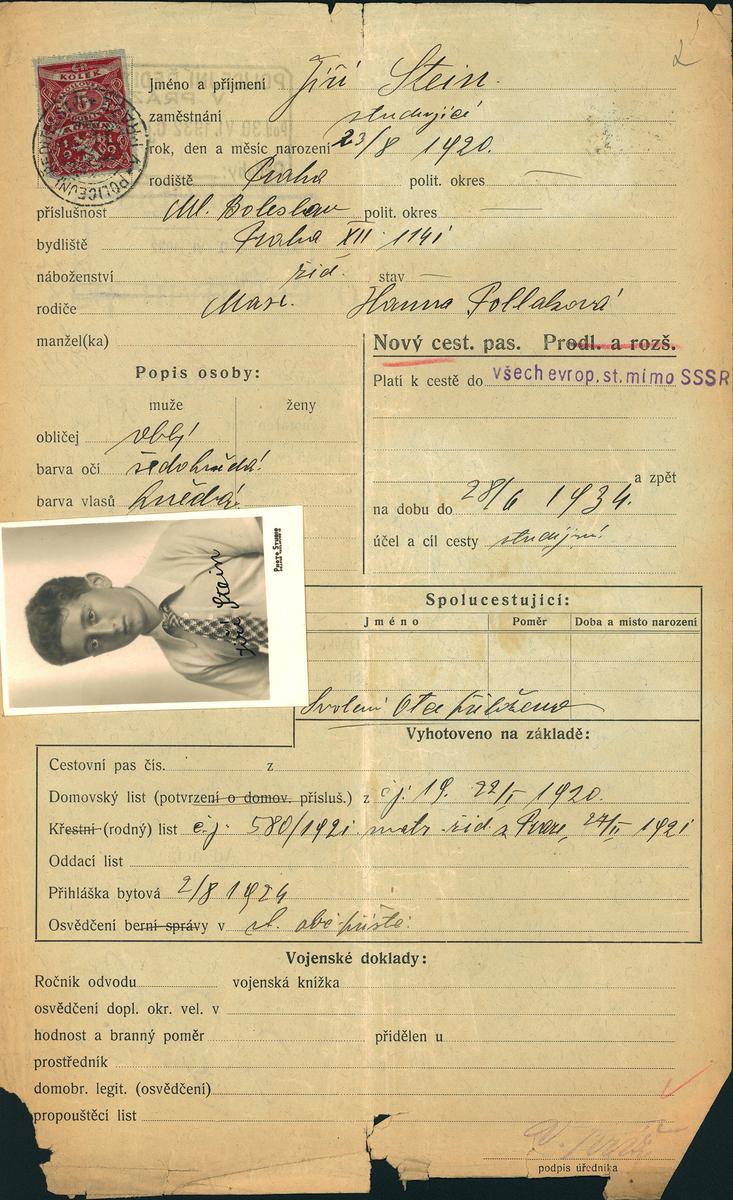 KOLEK
Jméno a příjmení Jiří Stein.
zaměstnání studující
rok, den a měsíc narození 23/8 1920.
rodiště Praha polit. okres —
příslušnost Ml. Boleslav polit. okres —
bydliště Praha XII 1141
náboženství žid. stav —
rodiče Max. Hanna Pollaková
manžel(ka)
Nový cest. pas. Prodl. a rozš.
Popis osoby:
Platí k cestě do všech evrop. st. mimo SSSR
muže ženy
obličej oblý
barva očí šedohnědá
barva vlasů hnědá
a zpět
na dobu do 28/6 1934.
účel a cíl cesty studijní
PHOTO STUDIO
Jiří Stein
Spolucestující:
Jméno Poměr Doba a místo narození
Svolení Otce přiloženo
Vyhotoveno na základě:
Cestovní pas čís. z
Domovský list (potvrzení o domov. přísluš.) z č.j. 19. 22/I 1920.
Křestní (rodný) list č.j. 580/1921 matr. žid. z Praze, 27/II 1921
Oddací list
Přihláška bytová 2/8 1924
Osvědčení berní správy v
Vojenské doklady:
Ročník odvodu vojenská knížka
osvědčení dopl. okr. vel. v
hodnost a branný poměr přidělen u
prostředník
domobr. legit. (osvědčení)
propouštěcí list
podpis úředníka